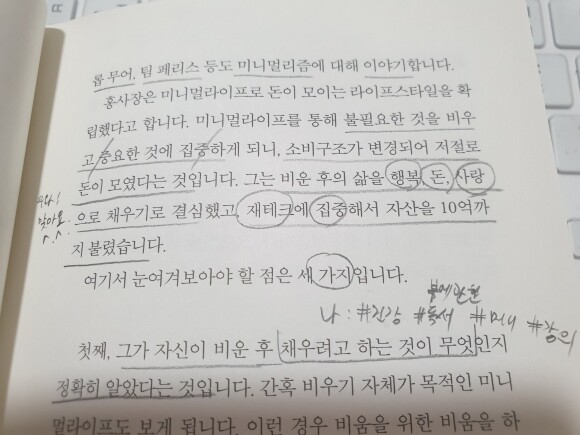 롭 무어, 팀 페리스 등도 미니멀리즘에 대해 이야기합니다.
홍사장은 미니멀라이프로 돈이 모이는 라이프스타일을 확
립했다고 합니다. 미니멀라이프를 통해 불필요한 것을 비우
고 중요한 것에 집중하게 되니, 소비구조가 변경되어 저절로
돈이 모였다는 것입니다. 그는 비운 후의 삶을 행복, 돈, 사랑
으로 채우기로 결심했고, 재테크에 집중해서 자산을 10억까
맞아요
지 불렸습니다.
여기서 눈여겨보아야 할 점은 세 가지입니다.
부에 관한
나 : #건강 #독서 #미니 #강의
첫째, 그가 자신이 비운 후 채우려고 하는 것이 무엇인지
정확히 알았다는 것입니다. 간혹 비우기 자체가 목적인 미니
멀라이프도 보게 됩니다. 이런 경우 비움을 위한 비움을 하